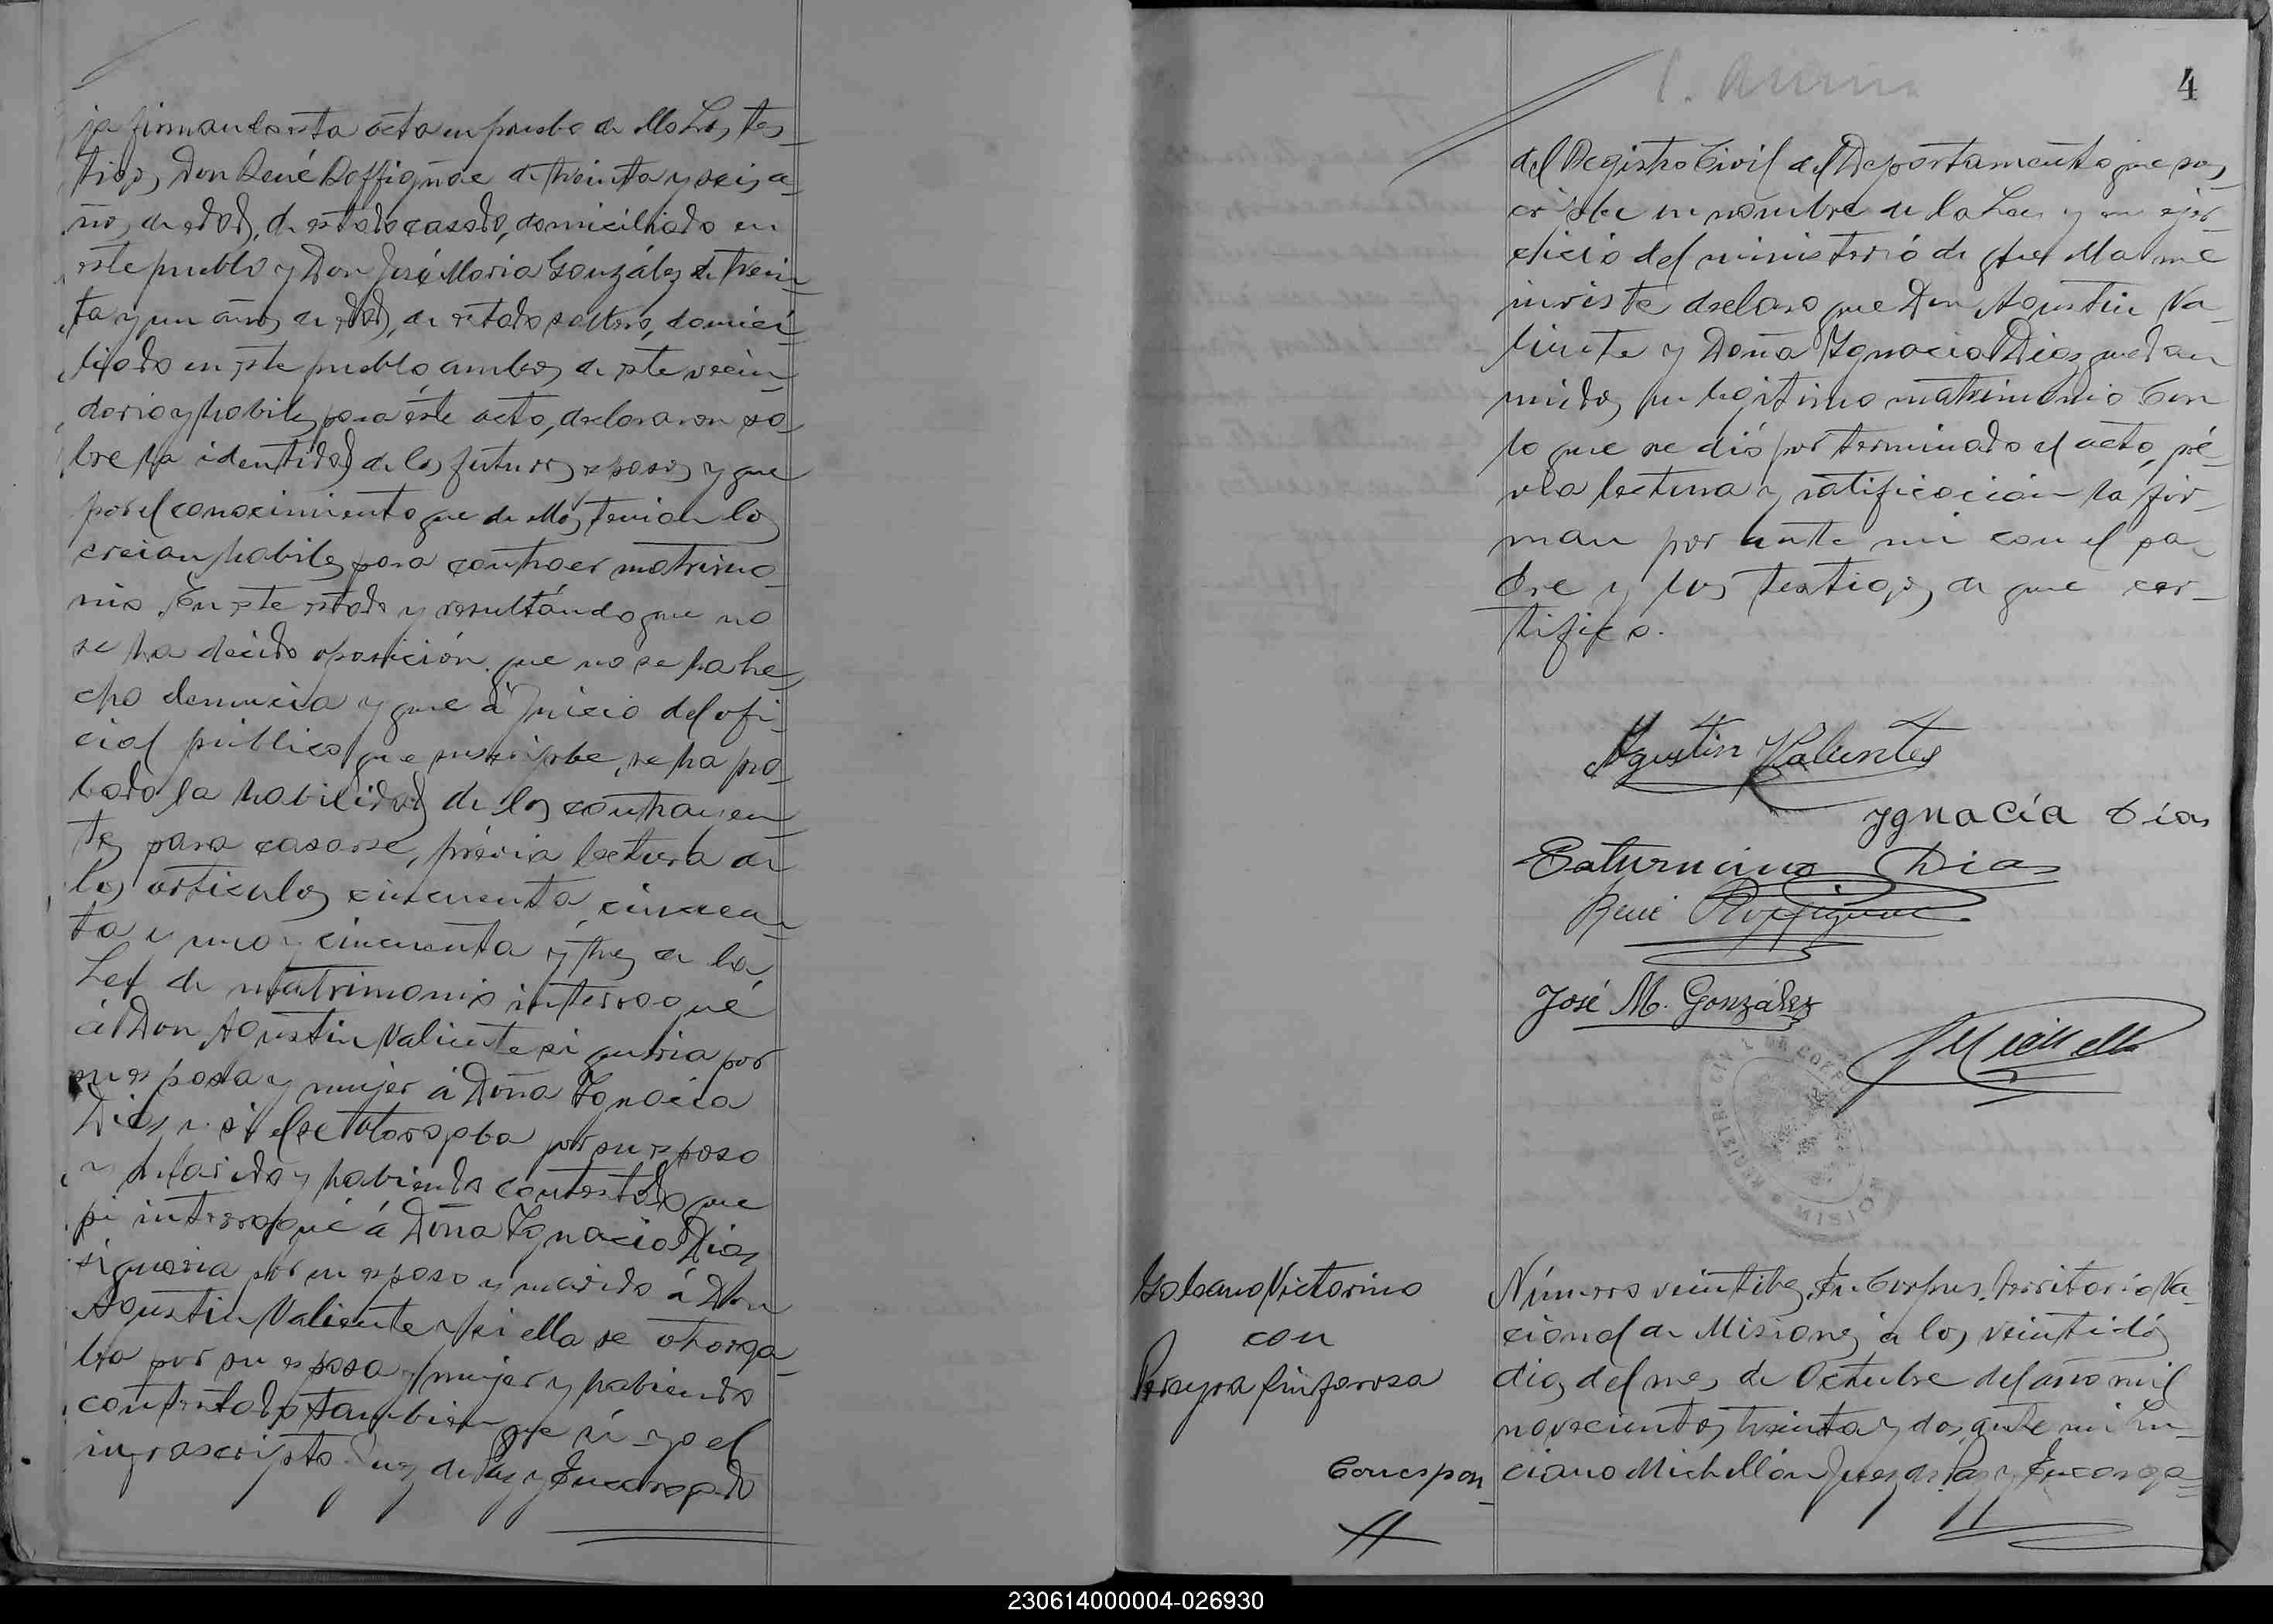 ja firmando esta acta en prueba de ello Los tes-
tigos, Don René Roffignac de treinta y seis a-
ños de edad, de estado casado, domiciliado en
este pueblo y Don José Maria González de trein-
ta y un años de edad, de estado soltero, domici-
liado en este pueblo, ambos de este vecin-
dario y habiles para este acto, declararon so-
bre la identidad de los futuros esposos y que
por el conocimiento que de ellos tenian los
creian habiles para contraer matrimo-
nio. En este estado y resultándo que no
se ha decido oposición, que no se ha he-
cho denuncia y que á juicio del ofi-
cial público que suscripbe, se ha pro-
bado la habilidad de los contrayen-
tes para casarse, prévia lectura de
los articulos cincuenta, cincuen-
ta y uno y cincuenta y tres de la
Ley de matrimonio interrogué
á Don Agustin Valiente si queria por
su esposa y mujer á Doña Ygnacia
Dias y si el se otorgaba por su esposo
y marido y habiendo contestado que
si interrogué á Doña Ygnacia Dias
si queria por su esposo y marido á Don
Agustin Valiente y si ella se otorga-
ba por su esposa y mujer y habiendo
contestado tambien que si yo el
infrascripto Juez de Paz y Encargado
4
del Registro Civil del Departamento que sus-
cribe en nombre de la Ley y en ejer-
cicio del ministerió de que ella me
inviste declaro que Don Agustin Va-
liente y Doña Ygnacia Dias quedan
unidos en legitimo matrimonio Con
lo que se dió por terminado el acto, pré-
via lectura y ratificación la fir-
man por ante mi con el pa-
dre y los testigos de que cer-
tifico.
Agustin Valientes
Ygnacia Dias
Saturnino Dias
René Roffignac
José M. González
REGISTRO CIVIL DE CORPUS
MISIONES
Galeano Victorino
con
Pereyra Sinforosa
Correspon-
Número veintitres, En Corpus, Territorio Na-
cional de Misiones á los veintidós
dias del mes de Octubre del año mil
novecientos treinta y dos, ante mi Lu-
ciano Michellón Juez de Paz y Encarga-
230614000004-026930